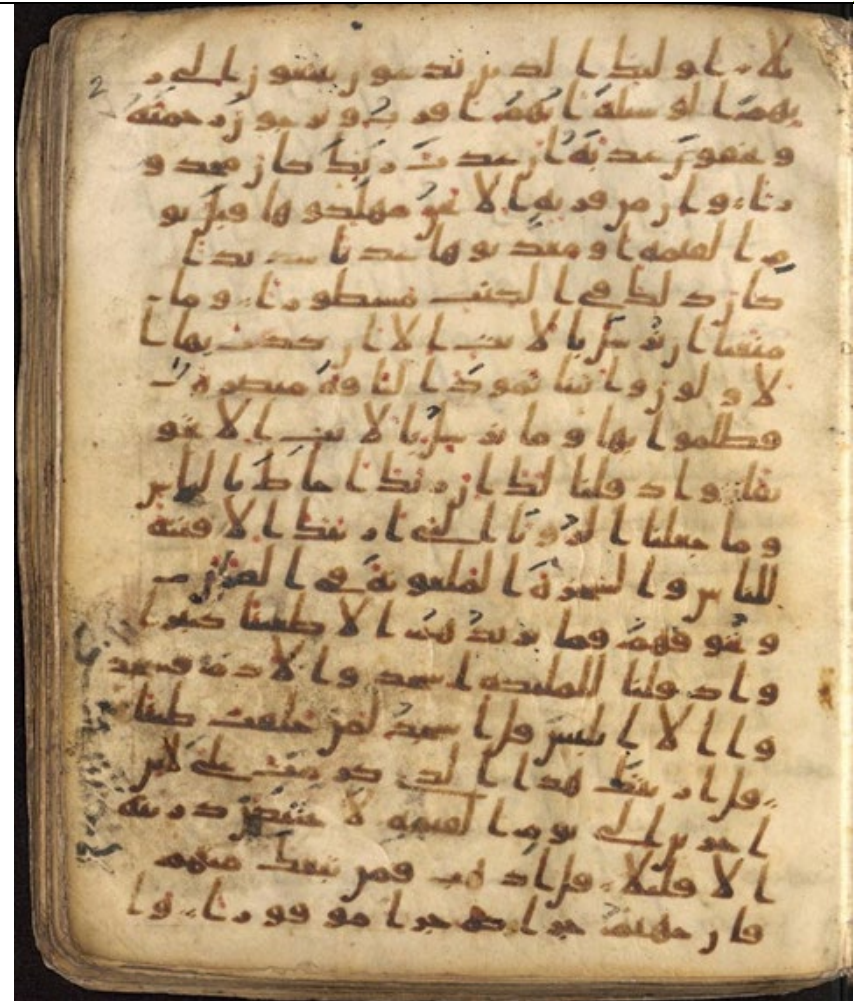 2
يلا اولئك الذين يدعون يبتغون الى ر
بهم الوسيلة ايهم اقرب و يرجون رحمته
و يخفون عذابه ان عذاب ربك كان محذو
را و ان من قرية الا نحن مهلكوها قبل يو
م القيمة او معذبوها عذابا شديدا
كان ذلك في الكتب مسطورا و ما
منعنا ان نرسل بالايت الا ان كذب بها ا
لاولون و اتينا ثمود الناقة مبصرة
فظلموا بها و ما نرسل بالايت الا تخو
يفا و اذ قلنا لك ان ربك احاط بالناس
و ما جعلنا الريا التي ارينك الا فتنة
للناس و الشجرة الملعونة في القران
و نخوفهم فما يزيدهم الا طغينا كبيرا
و اذ قلنا للمليكة اسجدوا لادم فسجد
وا الا ابليس قال اسجد لمن خلقت طينا
قل اريتك هذا الذي كرمت علي لئن
اخرتن الى يوم القيمة لاحتنكن ذريته
الا قليلا قل اذهب فمن تبعك منهم
فان جهنم جزاوكم جزا موفورا وا